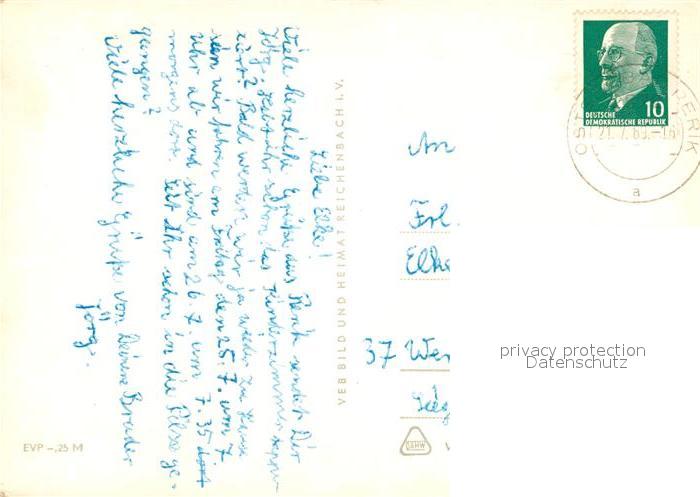 Liebe Elke!
Viele herzliche Grüße aus Rerik sendet Dir
Jörg. Habt Ihr schon das Kinderzimmer
? Bald werden wir ja wieder zu Hause
sein wir fahren am Freitag den 25. 7. um 7
Uhr ab und sind am 26. 7. um 7.35 dort
morgens dort. Seit Ihr schon in die Pilze ge-
gangen?
Viele herzliche Grüße von Deinem Bruder
Jörg.
VEB BILD UND HEIMAT REICHENBACH I. V.
EVP –,25 M
DEUTSCHE
DEMOKRATISCHE REPUBLIK
10
OSTSEEBAD RERIK
21. 7. 69.-16
a
An
Frl.
Elke
37 Wer
DAHW
privacy protection
Datenschutz